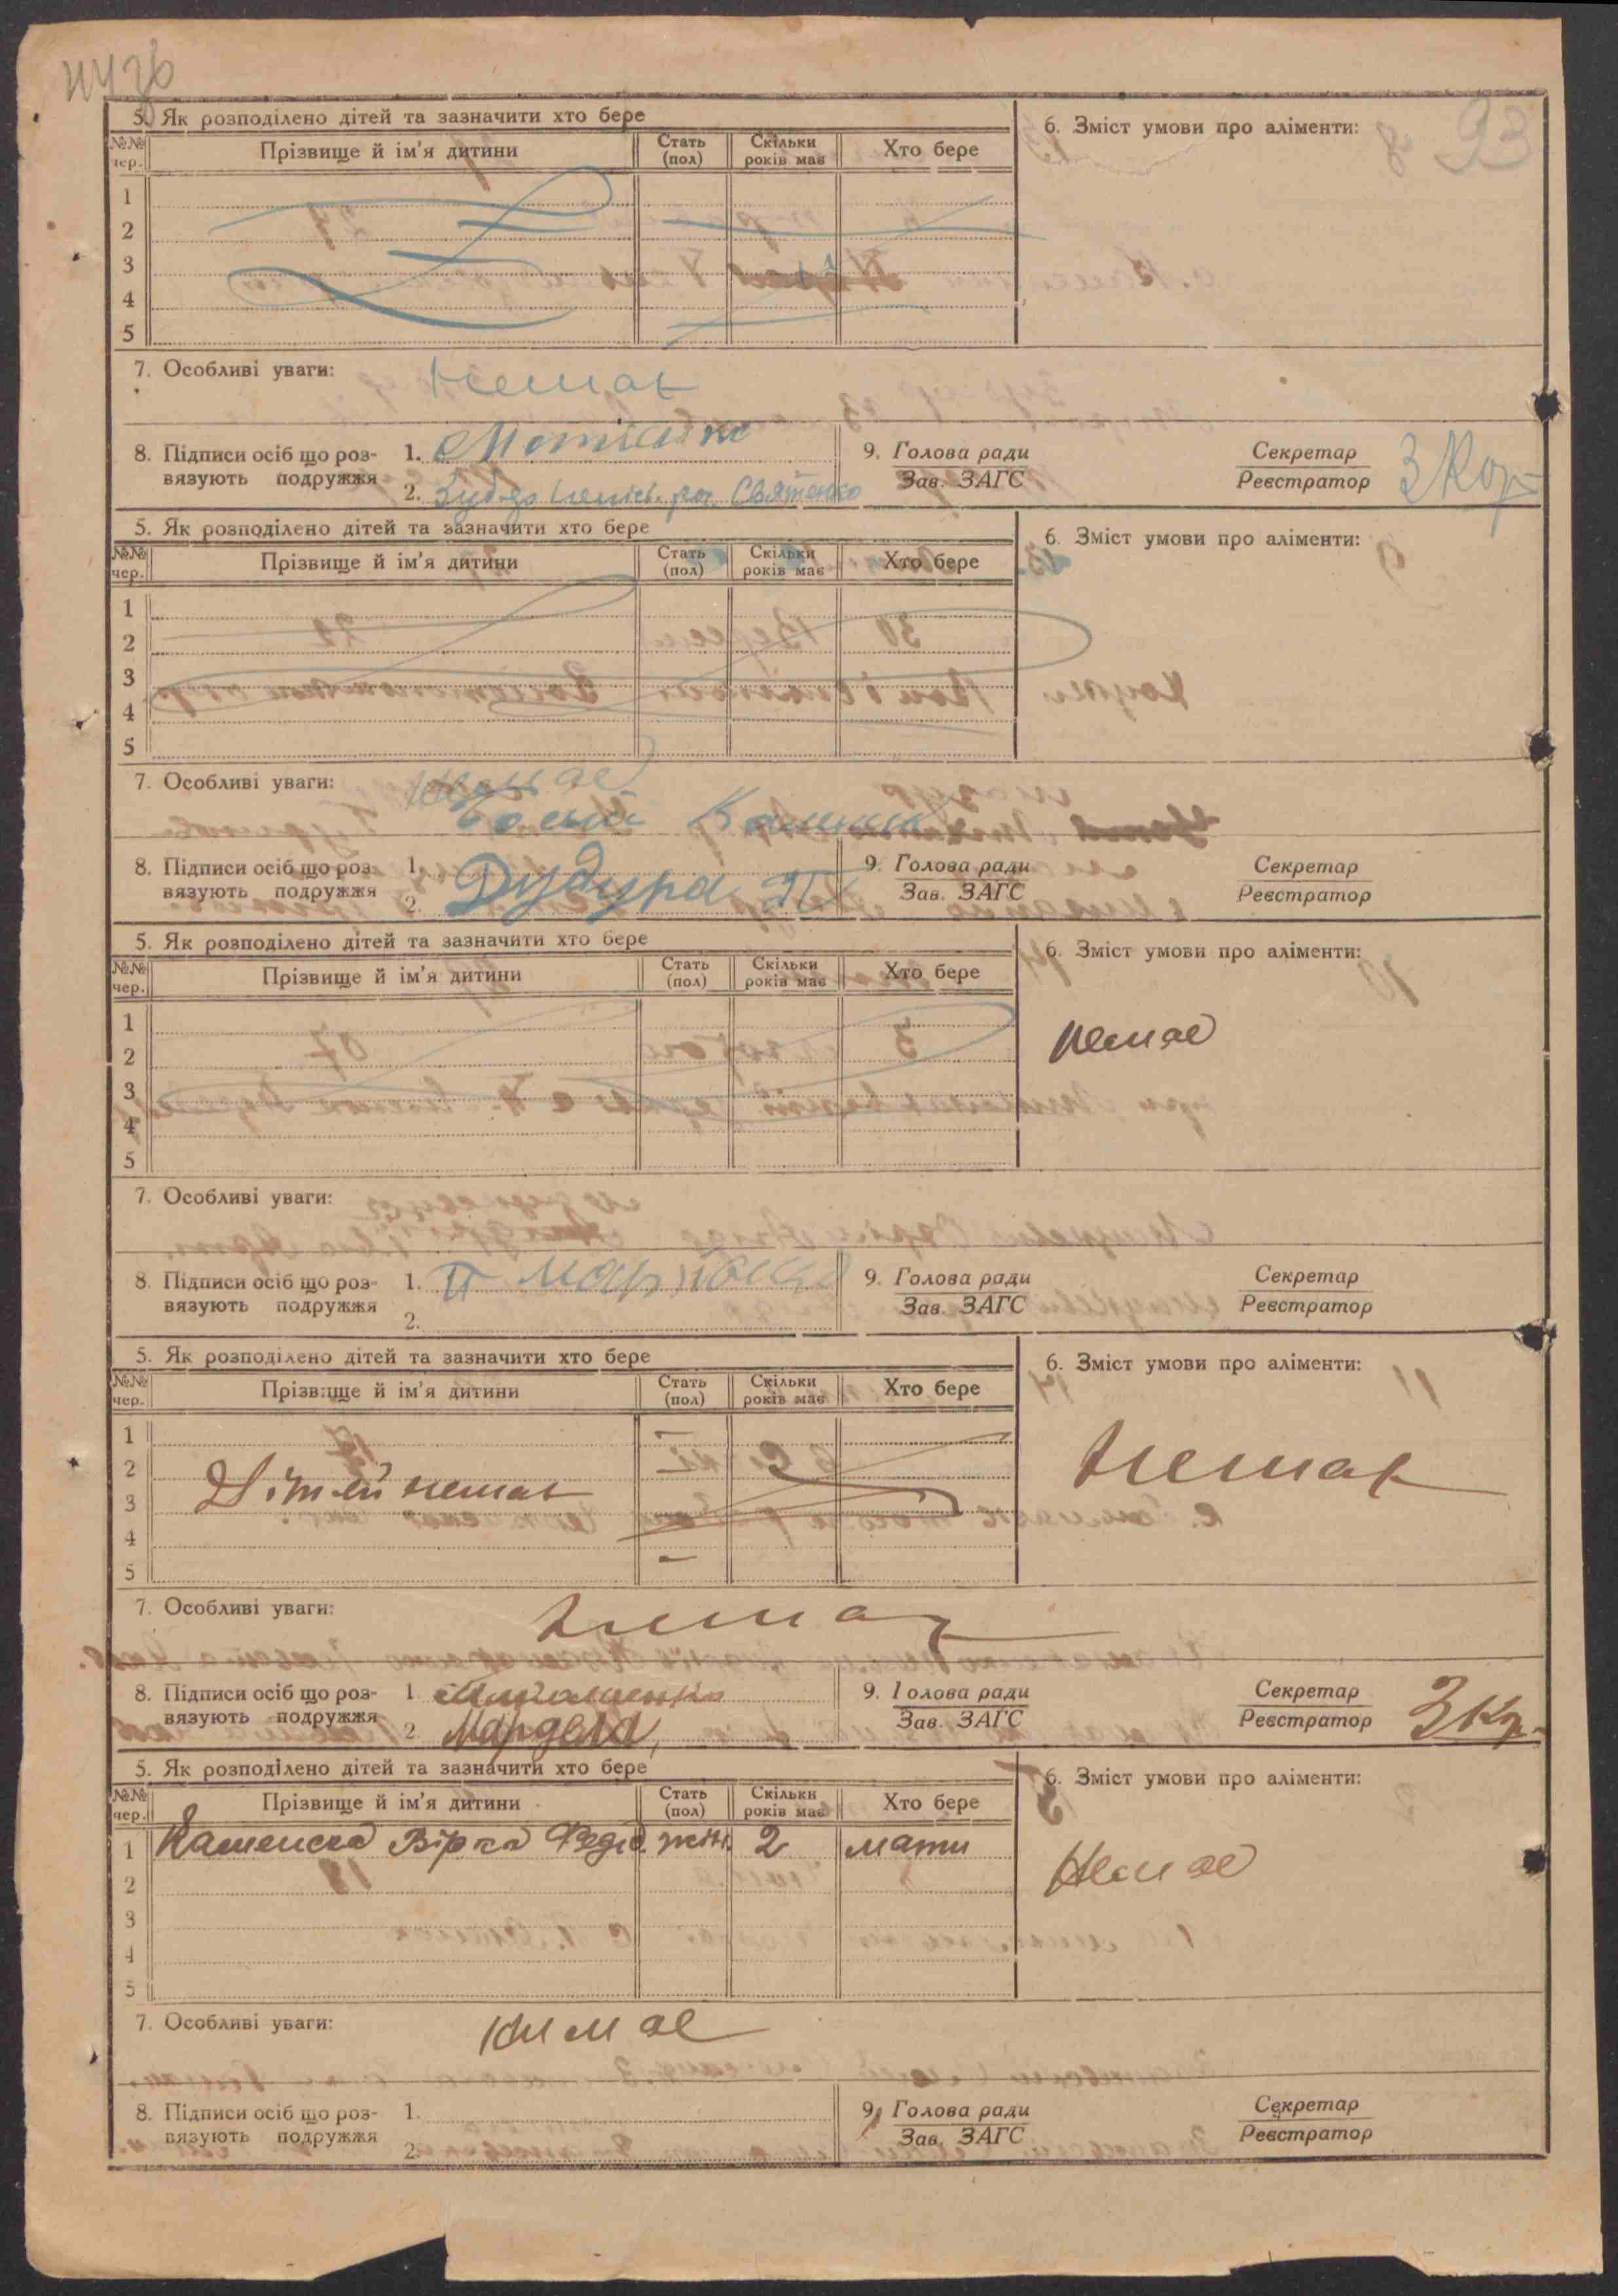 93
5. Як розподілено дітей та зазначити хто бере
6. Зміст умови про аліменти:
№№ чер. Прізвище й ім'я дитини Стать (пол) Скільки років має Хто бере
1
2
3
4
5
7. Особливі уваги: немає
8. Підписи осіб що роз-вязують подружжя
1.
2. Святенко
9. Голова ради
Зав. ЗАГС
Секретар
Реєстратор
3 Кор
5. Як розподілено дітей та зазначити хто бере
6. Зміст умови про аліменти:
№№ чер. Прізвище й ім'я дитини Стать (пол) Скільки років має Хто бере
1
2
3
4
5
7. Особливі уваги: немає
8. Підписи осіб що роз-вязують подружжя
1.
2. Дудура
9. Голова ради
Зав. ЗАГС
Секретар
Реєстратор
5. Як розподілено дітей та зазначити хто бере
6. Зміст умови про аліменти:
№№ чер. Прізвище й ім'я дитини Стать (пол) Скільки років має Хто бере
немає
1
2
3
4
5
7. Особливі уваги:
8. Підписи осіб що роз-вязують подружжя
1.
2.
9. Голова ради
Зав. ЗАГС
Секретар
Реєстратор
5. Як розподілено дітей та зазначити хто бере
6. Зміст умови про аліменти:
№№ чер. Прізвище й ім'я дитини Стать (пол) Скільки років має Хто бере
Немає
1
2
Дітей немає
3
4
5
7. Особливі уваги: Немає
8. Підписи осіб що роз-вязують подружжя
1.
2.
9. Голова ради
Зав. ЗАГС
Секретар
Реєстратор
3 Кр.
5. Як розподілено дітей та зазначити хто бере
6. Зміст умови про аліменти:
№№ чер. Прізвище й ім'я дитини Стать (пол) Скільки років має Хто бере
1 Каменска Вірка Федід. жін. 2 мати
Немає
2
3
4
5
7. Особливі уваги: немає
8. Підписи осіб що роз-вязують подружжя
1.
2.
9. Голова ради
Зав. ЗАГС
Секретар
Реєстратор